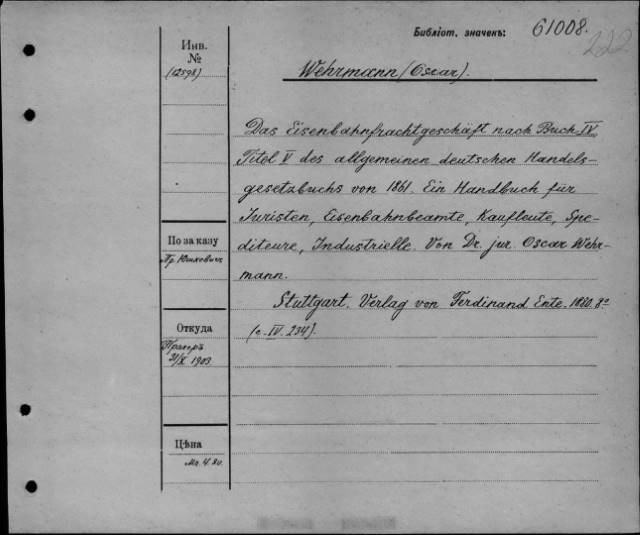 Библіот. значекъ: 61008.
222
Инв.
№
(12598)
Wehrmann (Oscar).
Das Eisenbahnfrachtgeschäft nach Buch IV,
Titel V des allgemeinen deutschen Handels-
gesetzbuchs von 1861. Ein Handbuch für
Juristen, Eisenbahnbeamte, Kaufleute, Spe-
diteure, Industrielle. Von Dr. jur. Oscar Wehr-
mann.
Stuttgart. Verlag von Ferdinand Enke. 1880. 8º
(с. IV. 234).
По заказу
Пр. Юшкевич
Откуда
Прагеръ
31/X 1903
Цѣна
Мк. 4.80.